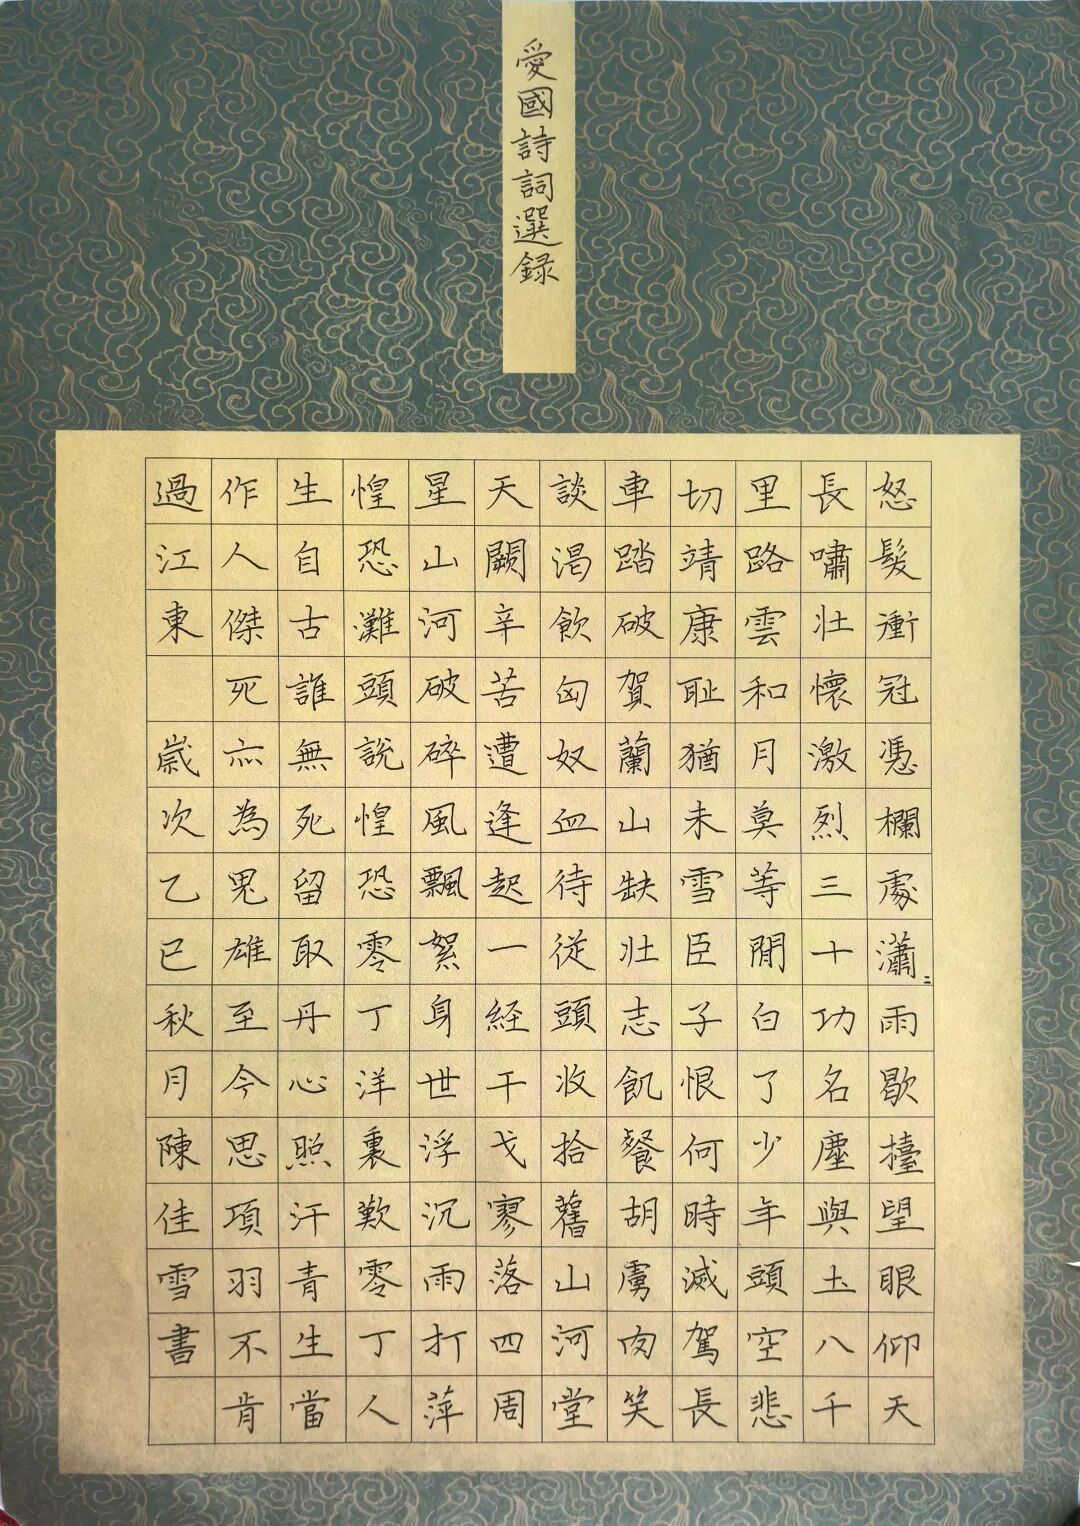 愛國詩詞選録
怒髮衝冠憑欄處瀟〻雨歇擡望眼仰天
長嘯壯懷激烈三十功名塵與土八千
里路雲和月莫等閒白了少年頭空悲
切靖康耻猶未雪臣子恨何時滅駕長
車踏破賀蘭山缺壯志飢餐胡虜肉笑
談渴飲匈奴血待從頭收拾舊山河堂
天闕辛苦遭逢起一経干戈寥落四周
星山河破碎風飄絮身世浮沉雨打萍
惶恐灘頭説惶恐零丁洋裏歎零丁人
生自古誰無死留取丹心照汗青生當
作人傑死亦為鬼雄至今思項羽不肯
過江東 歲次乙巳秋月陳佳雪書